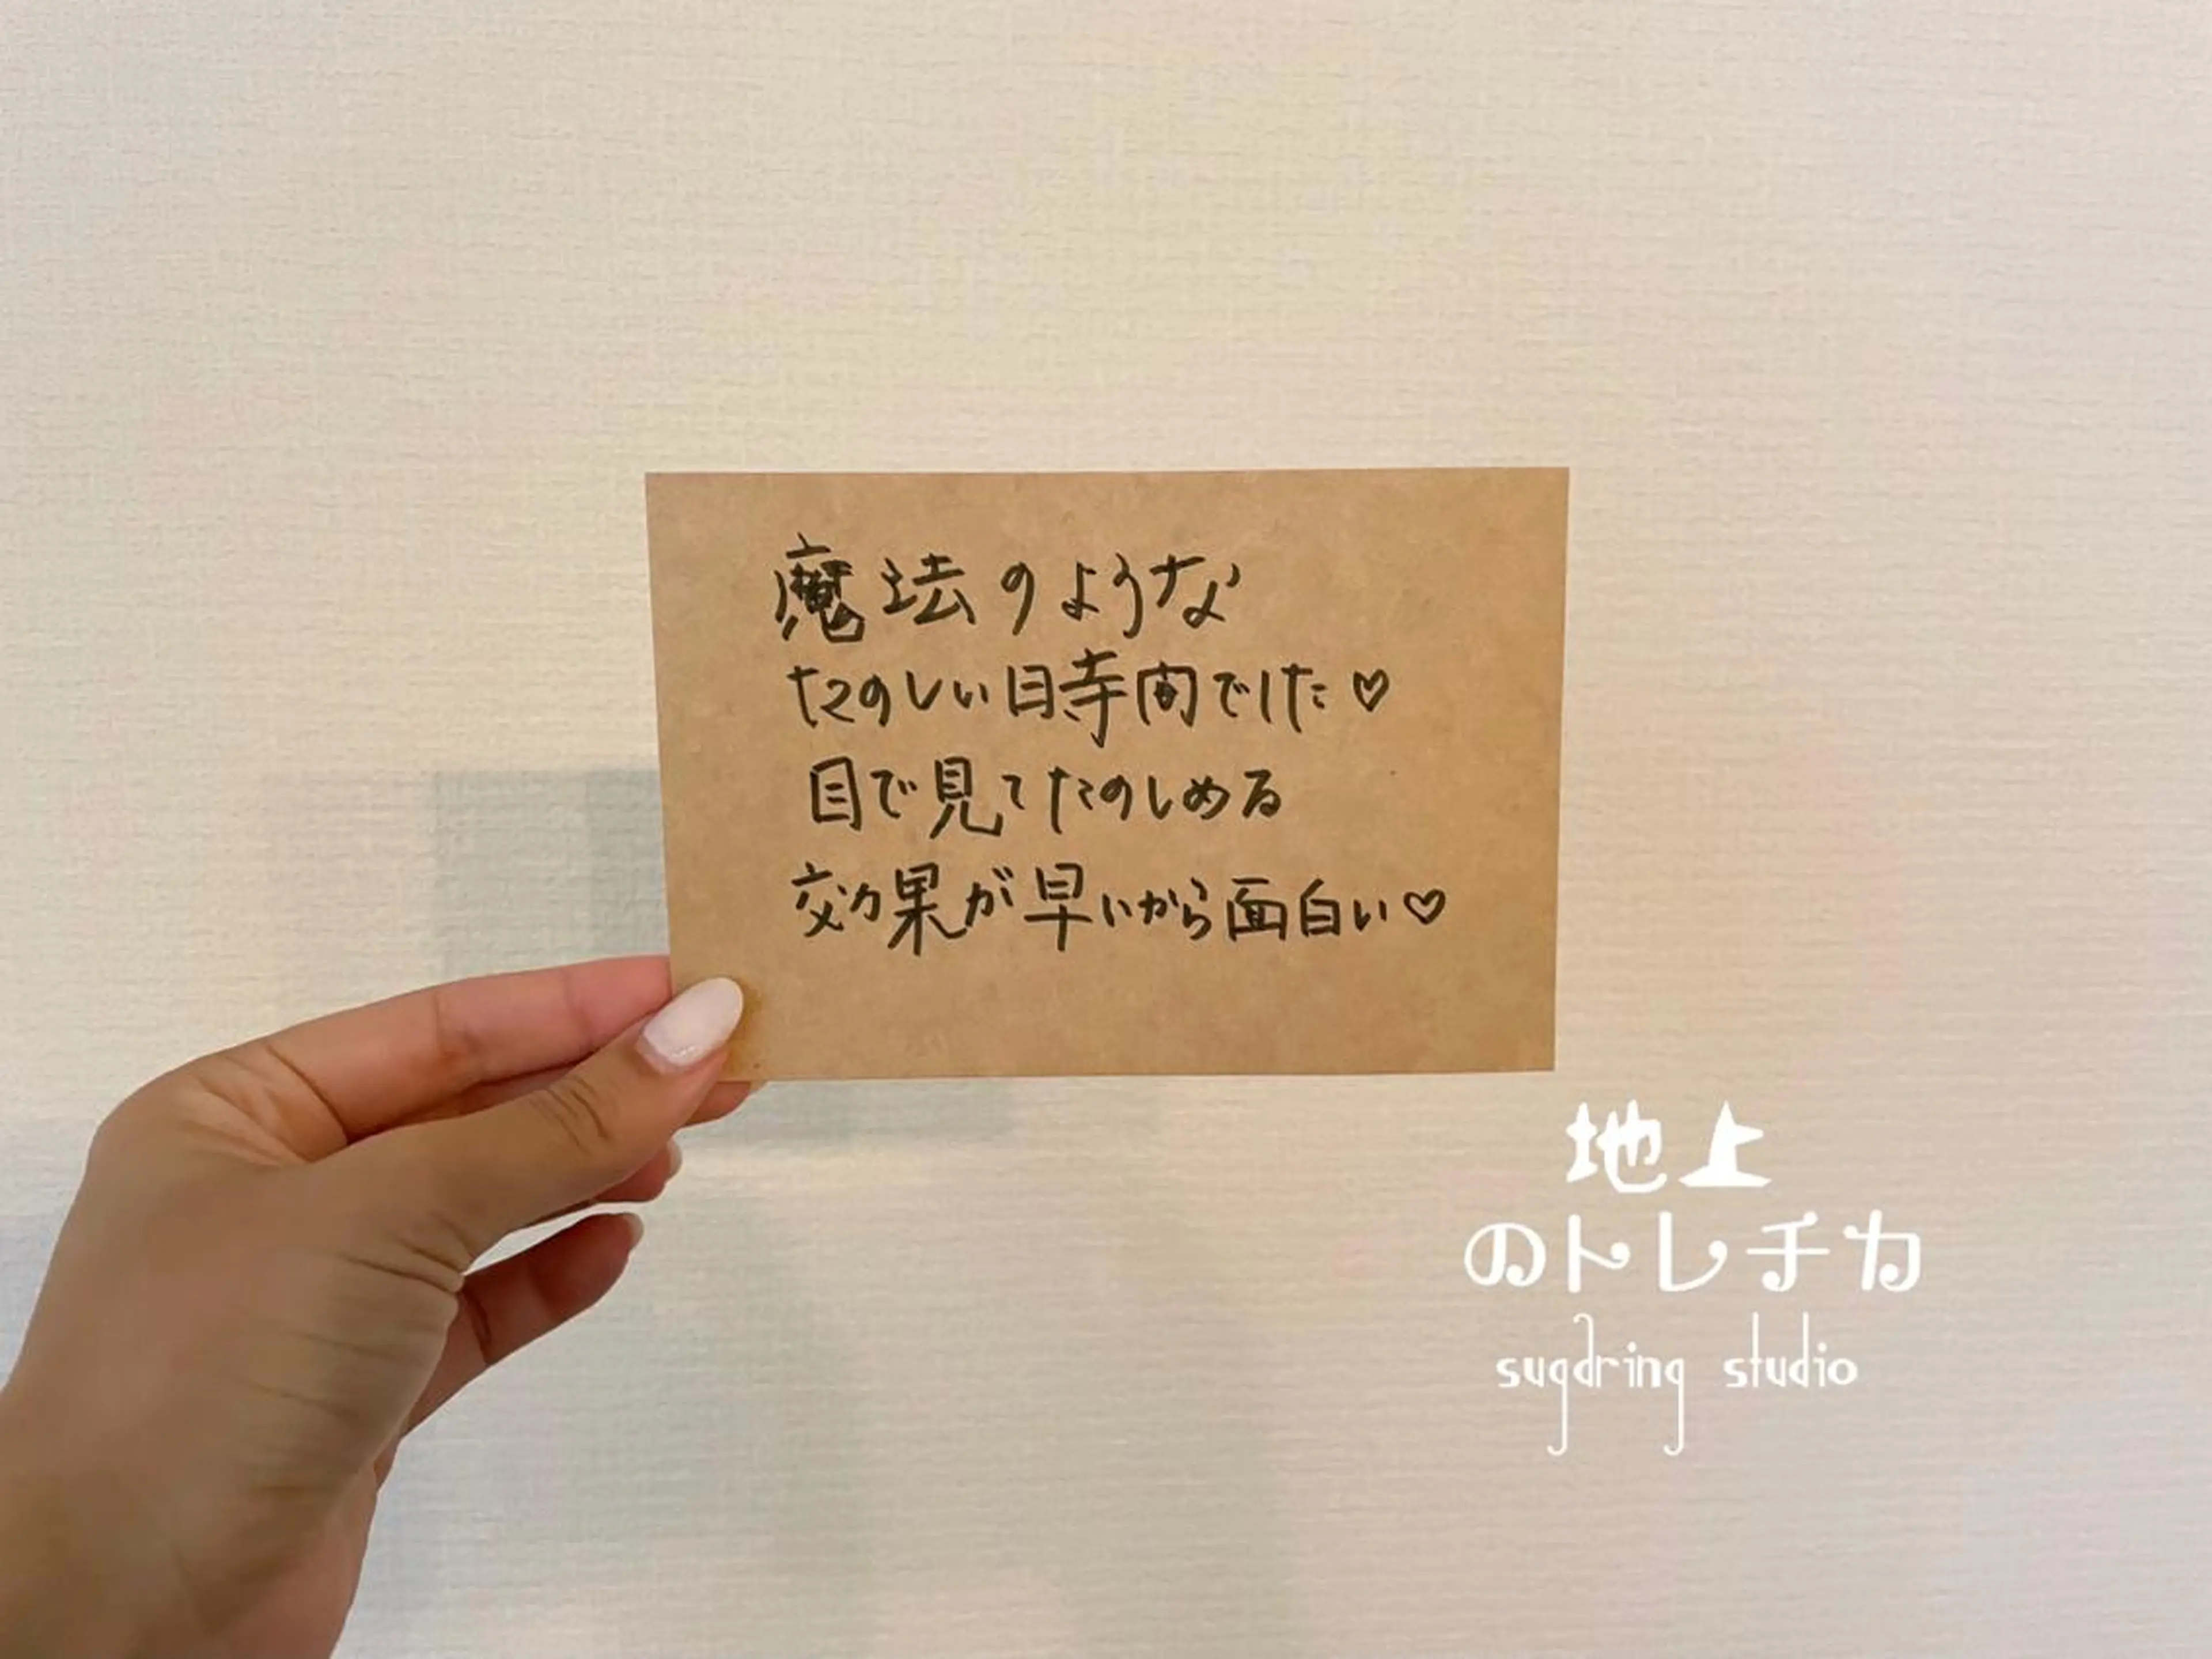 魔法のような
たのしい時間でした♡
目で見てたのしめる
効果が早いから面白い♡
地上
のトレチカ
sugdring studio